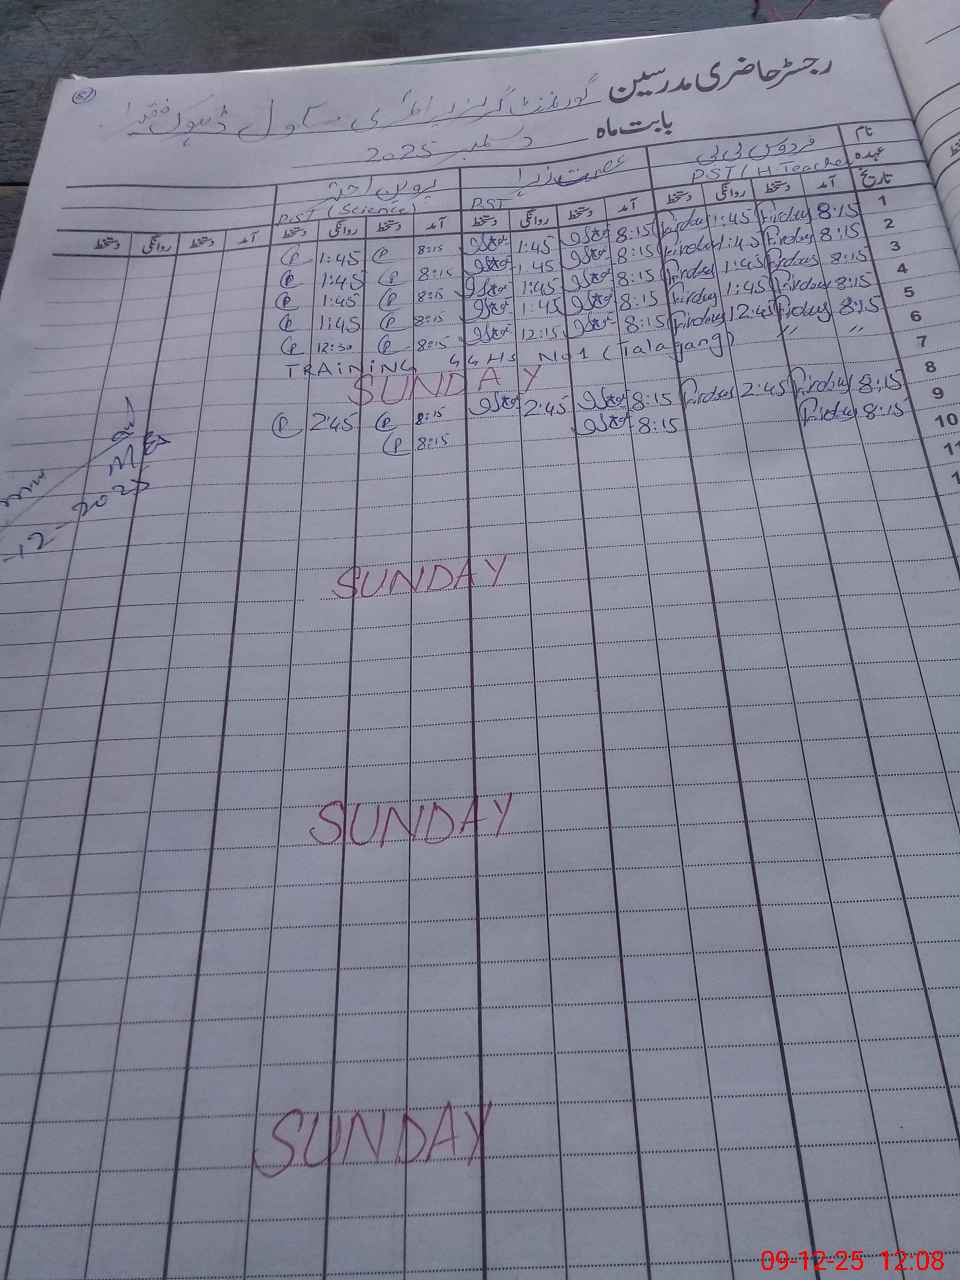 رجسٹر حاضری مدرسین
گورنمنٹ گرلز پرائمری سکول ڈھوک فقیرا
بابت ماہ دسمبر 2025
نام فردوس بی بی عصمت زہرا
عہدہ PST (H.Teacher PST PST (Science)
تاریخ آمد دستخط روانگی دستخط آمد دستخط روانگی دستخط آمد دستخط روانگی دستخط آمد دستخط روانگی دستخط
1 8:15 Firdous 1:45 Firdous 8:15 1:45 8:15 1:45
2 8:15 Firdous 1:45 Firdous 8:15 1:45 8:15 1:45
3 8:15 Firdous 1:45 Firdous 8:15 1:45 8:15 1:45
4 8:15 Firdous 1:45 Firdous 8:15 1:45 8:15 1:45
5 8:15 Firdous 12:45 Firdous 8:15 12:15 8:15 12:30
6 TRAINING GGHS No 1 (Talagang) " "
7 SUNDAY
8 8:15 Firdous 2:45 Firdous 8:15 2:45 8:15 2:45
9 8:15 Firdous 8:15 8:15
10
11
SUNDAY
SUNDAY
SUNDAY
09-12-25 12:08